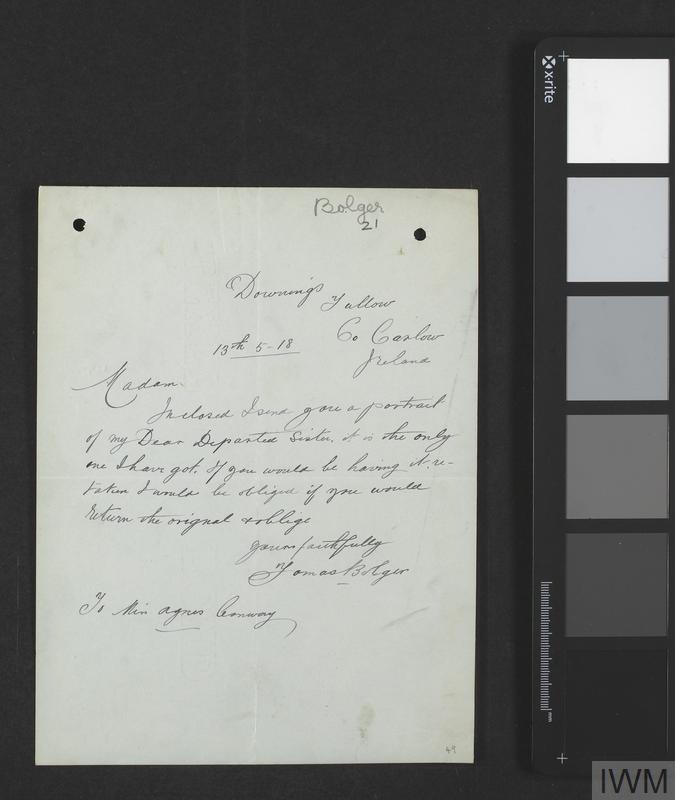 Bolger
21
Downings Tullow
Co Carlow
Ireland
13th 5-18
Madam.
Inclosed I send you a portrait
of my Dear Departed Sister. it is the only
one I have got. If you would be having it re-
taken I would be obliged if you would
return the orignal & oblige
yours faithfully
Tomas Bolger
To Miss Agnes Conway
49
x-rite
mm
IWM